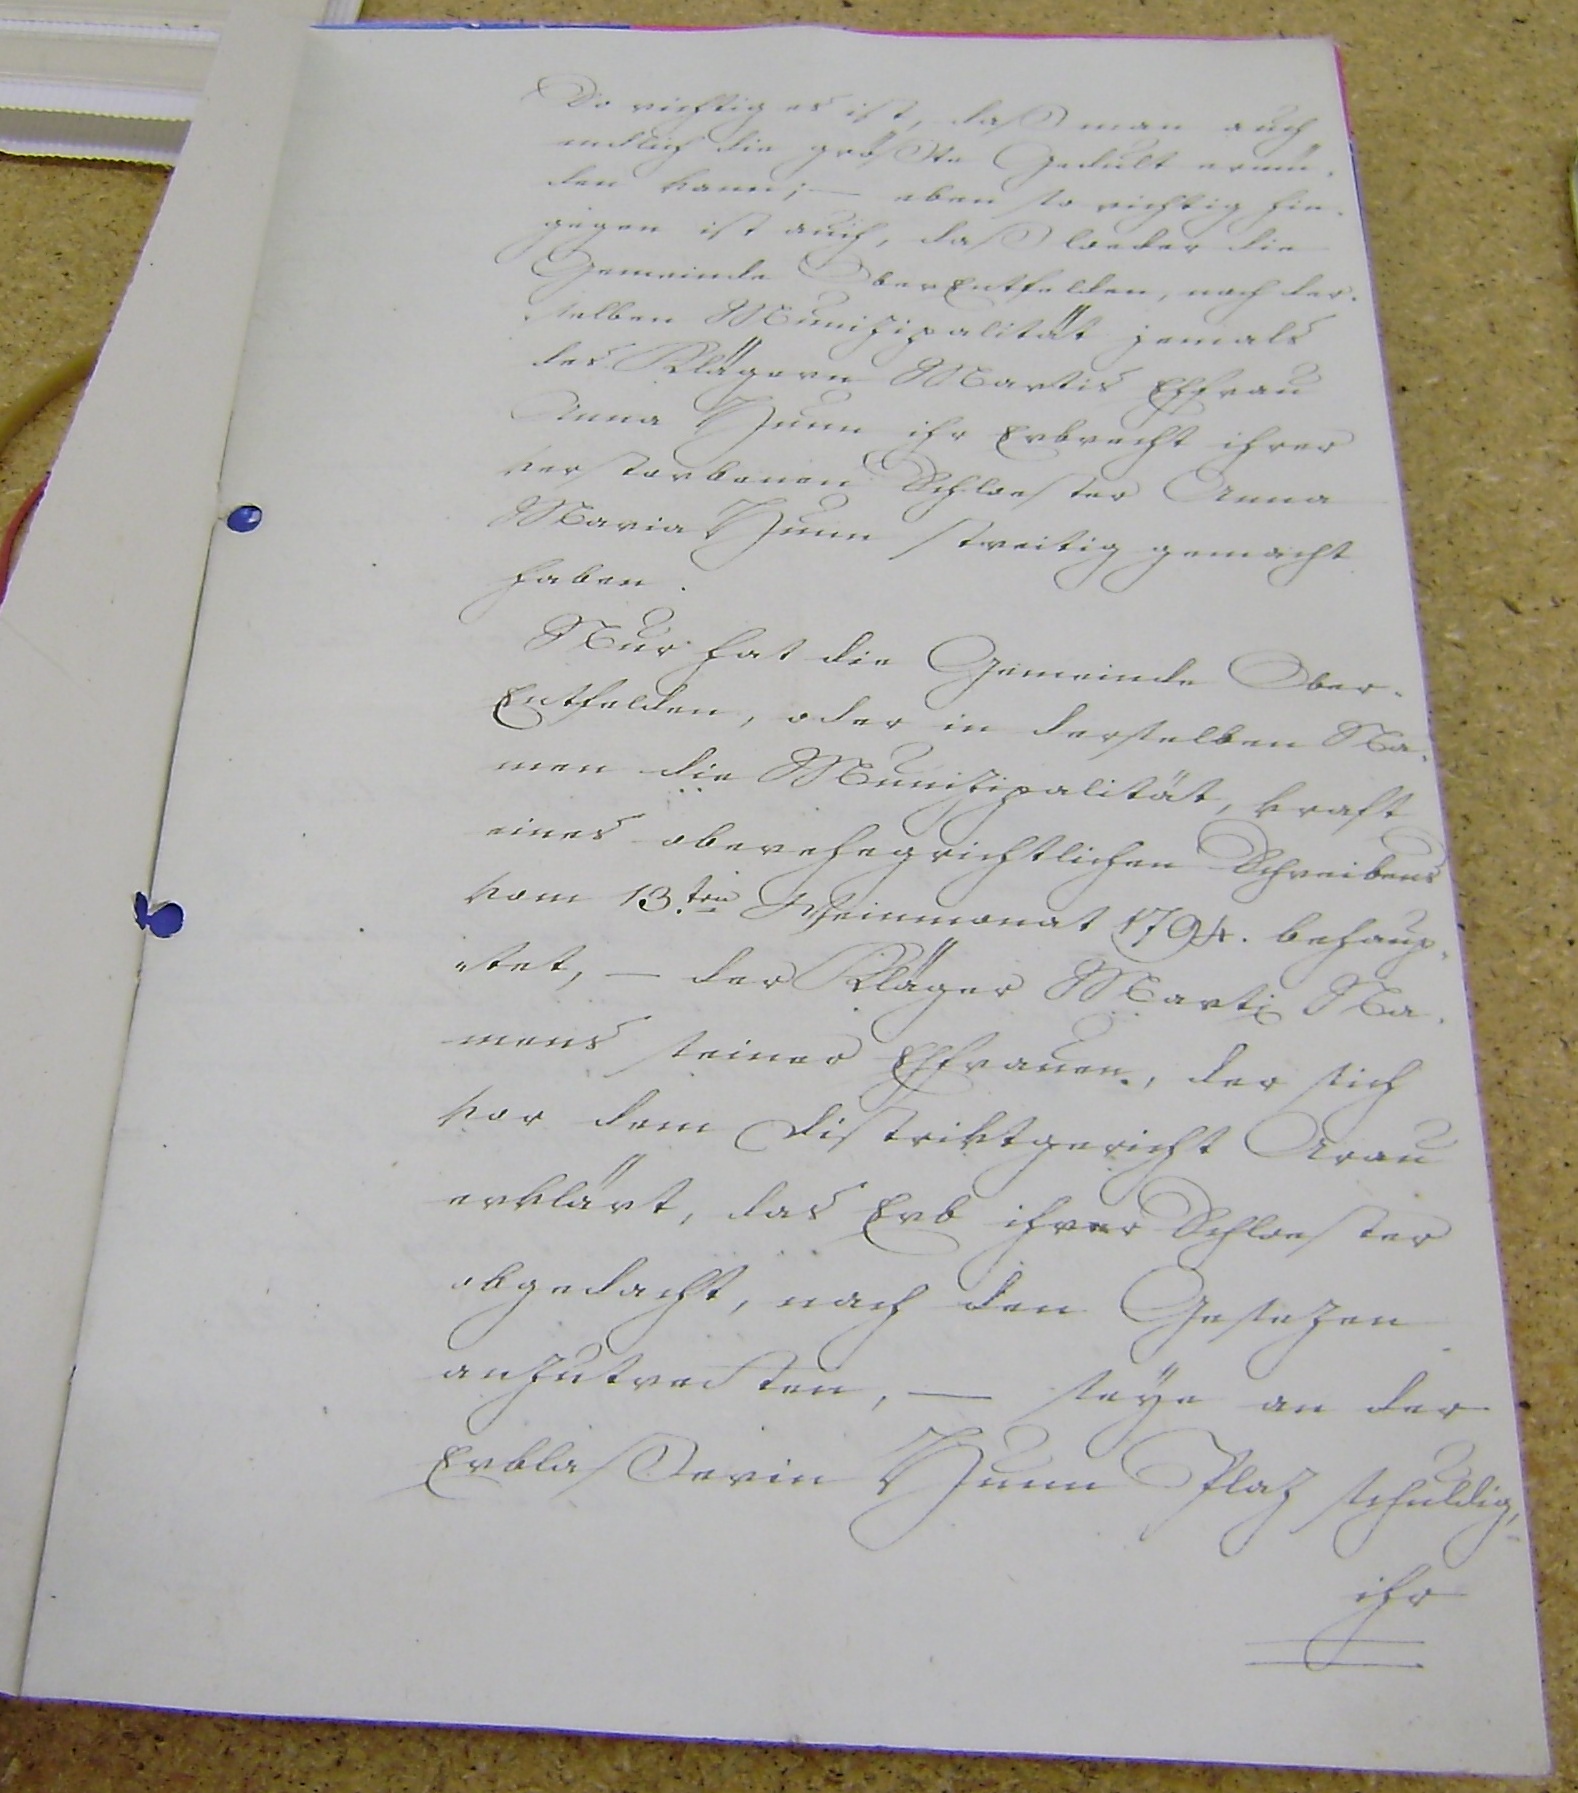 So richtig es ist, daß man auch
endlich die größte Gedult ermü-
den kann; — eben so richtig hin-
gegen ist auch, daß weder die
Gemeinde OberEntfelden, noch der-
selben Munizipalität jemals
des Klägern Martis Ehfrau
Anna Hunn ihr Erbrecht ihrer
verstorbenen Schwester Anna
Maria Hunn streitig gemacht
haben.
Nur hat die Gemeinde Ober-
Entfelden, oder in derselben Na-
men die Munizipalität, kraft
eines oberehegrichtlichen Schreibens
vom 13.ten Weinmonat 1794. behaup-
tet, — der Kläger Marti Na-
mens seiner Ehfrauen, der sich
vor dem Distriktgericht Arau
erklärt, das Erb ihrer Schwester
obgedacht, nach den Gesezen
anzutretten, — seÿe an der
Erblaßerin Hunn Plaz schuldig,
ihr